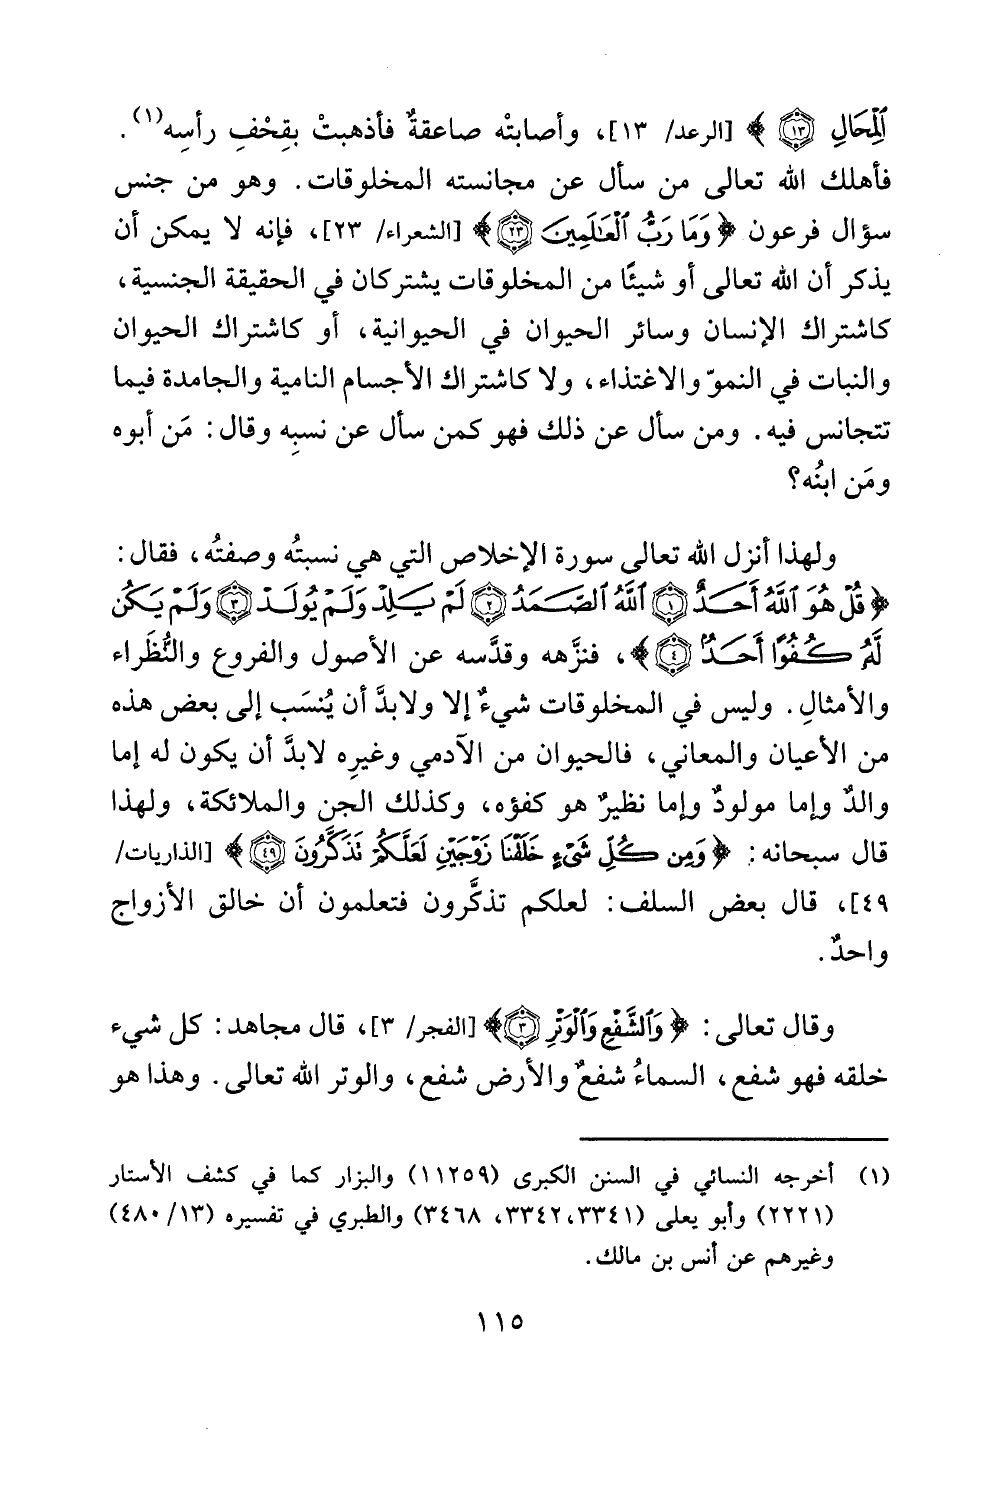 ٱلْمِحَالِ ﴿١٣﴾ ﴾ [الرعد/ ١٣]، وأصابتْه صاعقةٌ فأذهبتْ بقِحْفِ رأسِه(١).
فأهلك الله تعالى من سأل عن مجانسته المخلوقات. وهو من جنس
سؤال فرعون ﴿ وَمَا رَبُّ ٱلْعَٰلَمِينَ ﴿٢٣﴾ ﴾ [الشعراء/ ٢٣]، فإنه لا يمكن أن
يذكر أن الله تعالى أو شيئًا من المخلوقات يشتركان في الحقيقة الجنسية،
كاشتراك الإنسان وسائر الحيوان في الحيوانية، أو كاشتراك الحيوان
والنبات في النموّ والاغتذاء، ولا كاشتراك الأجسام النامية والجامدة فيما
تتجانس فيه. ومن سأل عن ذلك فهو كمن سأل عن نسبِه وقال: مَن أبوه
ومَن ابنُه؟
ولهذا أنزل الله تعالى سورة الإخلاص التي هي نسبتُه وصفتُه، فقال:
﴿ قُلْ هُوَ ٱللَّهُ أَحَدٌ ﴿١﴾ ٱللَّهُ ٱلصَّمَدُ ﴿٢﴾ لَمْ يَلِدْ وَلَمْ يُولَدْ ﴿٣﴾ وَلَمْ يَكُن
لَّهُۥ كُفُوًا أَحَدٌۢ ﴿٤﴾ ﴾، فنزَّهه وقدَّسه عن الأصول والفروع والنُّظَراء
والأمثالِ. وليس في المخلوقات شيءٌ إلا ولابدَّ أن يُنسَب إلى بعض هذه
من الأعيان والمعاني، فالحيوان من الآدمي وغيرِه لابدَّ أن يكون له إما
والدٌ وإما مولودٌ وإما نظيرٌ هو كفؤه، وكذلك الجن والملائكة، ولهذا
قال سبحانه: ﴿ وَمِن كُلِّ شَىْءٍ خَلَقْنَا زَوْجَيْنِ لَعَلَّكُمْ تَذَكَّرُونَ ﴿٤٩﴾ ﴾ [الذاريات/
٤٩]، قال بعض السلف: لعلكم تذكَّرون فتعلمون أن خالق الأزواج
واحدٌ.
وقال تعالى: ﴿ وَٱلشَّفْعِ وَٱلْوَتْرِ ﴿٣﴾ ﴾ [الفجر/ ٣]، قال مجاهد: كل شيء
خلقه فهو شفع، السماءُ شفعٌ والأرض شفع، والوتر الله تعالى. وهذا هو
(١) أخرجه النسائي في السنن الكبرى (١١٢٥٩) والبزار كما في كشف الأستار
(٢٢٢١) وأبو يعلى (٣٣٤١،٣٣٤٢، ٣٤٦٨) والطبري في تفسيره (١٣/ ٤٨٠)
وغيرهم عن أنس بن مالك.
١١٥